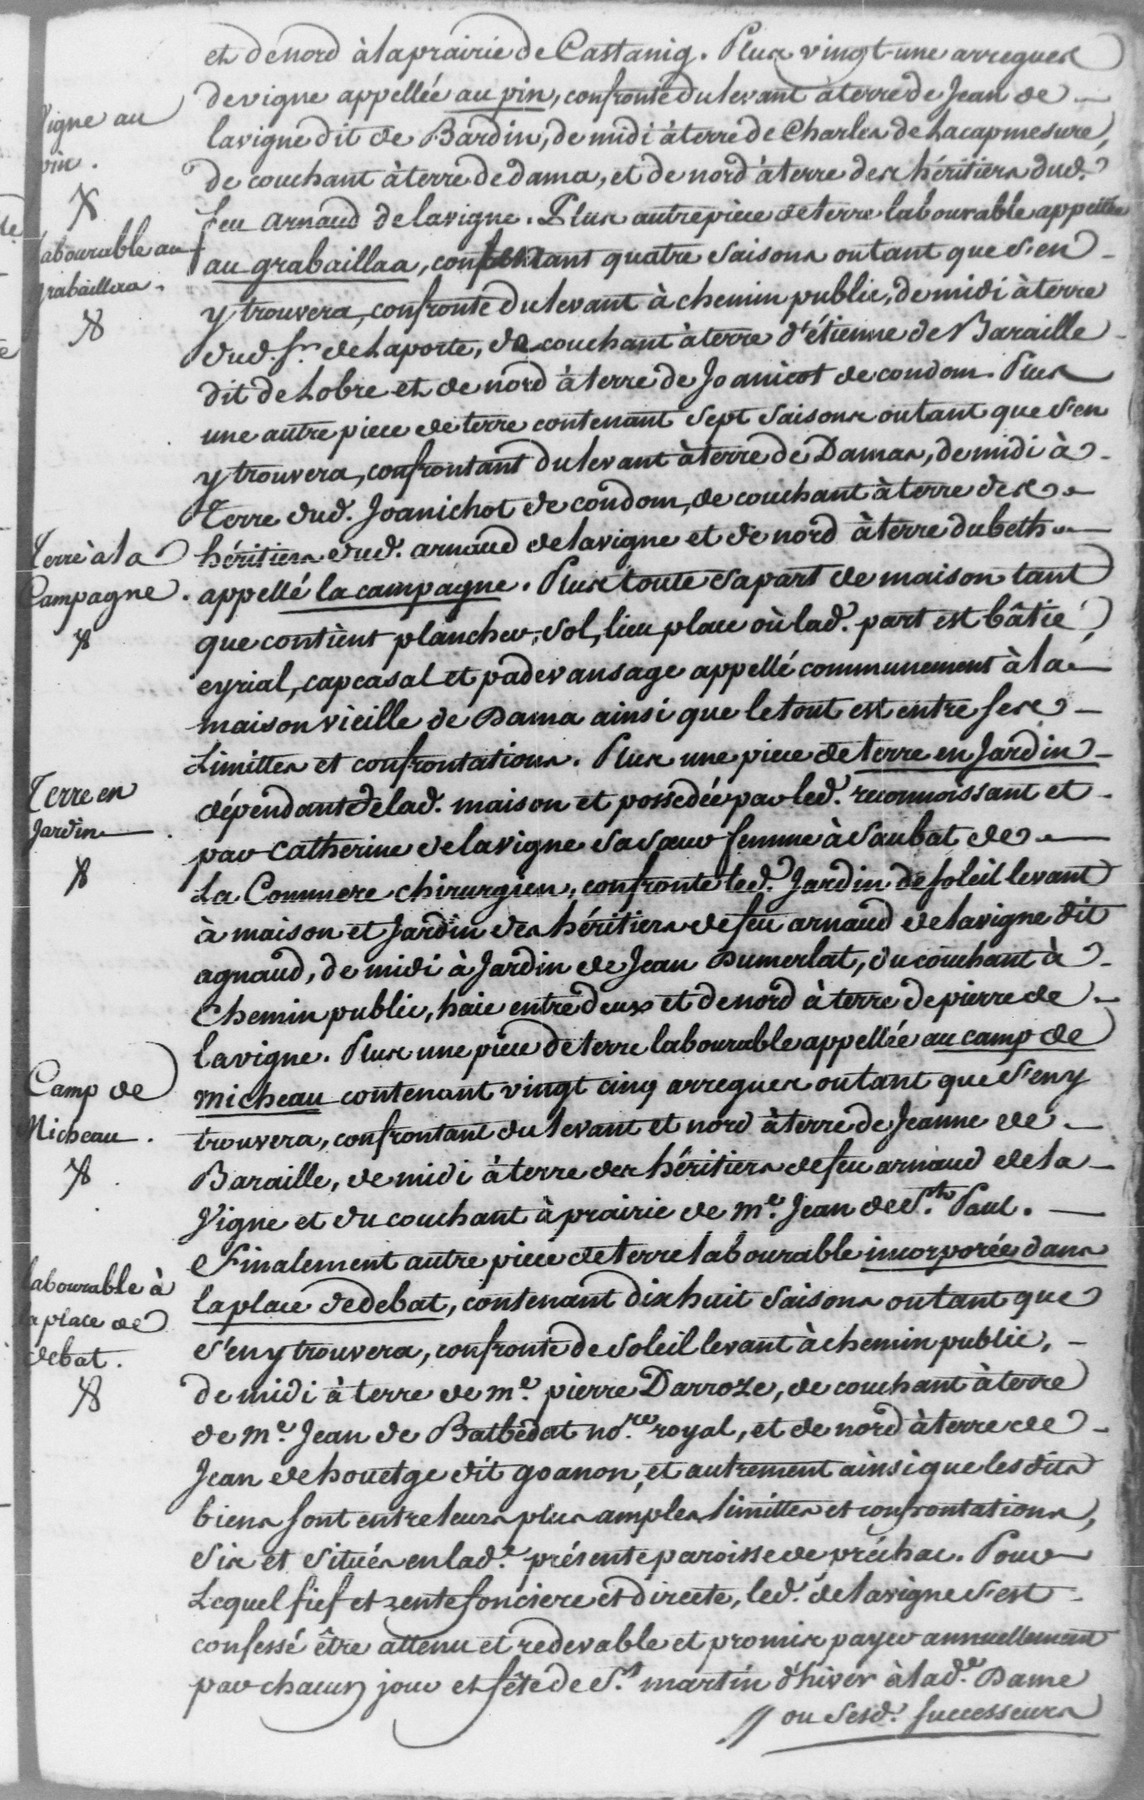 et de nord à la prairie de Castanig. Plus vingt-une arregues
de vigne appellée au pin, confronte du levant à terre de Jean de
lavigne dit de Bardin, de midi à terre de Charles de Lacapmesure,
de couchant à terre de dama, et de nord à terre des héritiers dud.
feu arnaud de lavigne. Plus autre piece de terre labourable appellée
au grabaillaa, contenant quatre saisons ou tant que s'en
y trouvera, confronte du levant à chemin public, de midi à terre
dud. Sr. de Laporte, de couchant à terre d'étienne de Baraille
dit de Lobre et de nord à terre de Joanicot de condom. Plus
une autre piece de terre contenant sept saisons ou tant que s'en
y trouvera, confrontant du levant à terre de Damas, de midi à
Terre dud. Joanichot de condom, de couchant à terre des
héritiers dud. arnaud delavigne et de nord à terre du beth
appellé la campagne. Plus toute sa part de maison tant
que contient plancher, sol, lieu place où lad. part est bâtie,
eyrial, capcasal et padevansage appellé communement à la
maison vieille de Dama ainsi que le tout est entre ses
Limittes et confrontations. Plus une piece de terre en Jardin
dépendante de lad. maison et possedée par led. reconnoissant et
par Catherine de lavigne sa sœur femme à Saubat de
La Commere chirurgien, confronte led. Jardin de soleil levant
à maison et Jardin des héritiers de feu arnaud de lavigne dit
agnaud, de midi à Jardin de Jean Dumerlat, du couchant à
Chemin public, haie entre deux et de nord à terre de pierre de
lavigne. Plus une piece de terre labourable appellée au camp de
micheau contenant vingt cinq arregues ou tant que s'en y
trouvera, confrontant du levant et nord à terre de Jeanne de
Baraille, de midi à terre des héritiers de feu arnaud de la
Vigne et du couchant à prairie de me. Jean de St. Paul.
Finalement autre piece de terre labourable incorporée dans
la place de debat, contenant dix huit saisons ou tant que
s'en y trouvera, confronte de soleil levant à chemin public,
de midi à terre de me. pierre Darroze, de couchant à terre
de Me. Jean de Batbédat nore. royal, et de nord à terre de
Jean de houetge dit goanon, et autrement ainsi que lesdits
biens sont entre leurs plus amples limittes et confrontations,
sis et situés en lad.e présente paroisse de préchac. Pour
Lequel fief et rente fonciere et directe, led. de lavigne s'est
confessé être attenu et redevable et promis payer annuellement
par chacun jour et fête de St. martin d'hiver à lad.e Dame
ou sesd. successeurs
Vigne au
pin.
labourable au
grabaillaa.
Terre à la
Campagne.
Terre en
Jardin
Camp de
Micheau.
labourable à
la place de
debat.